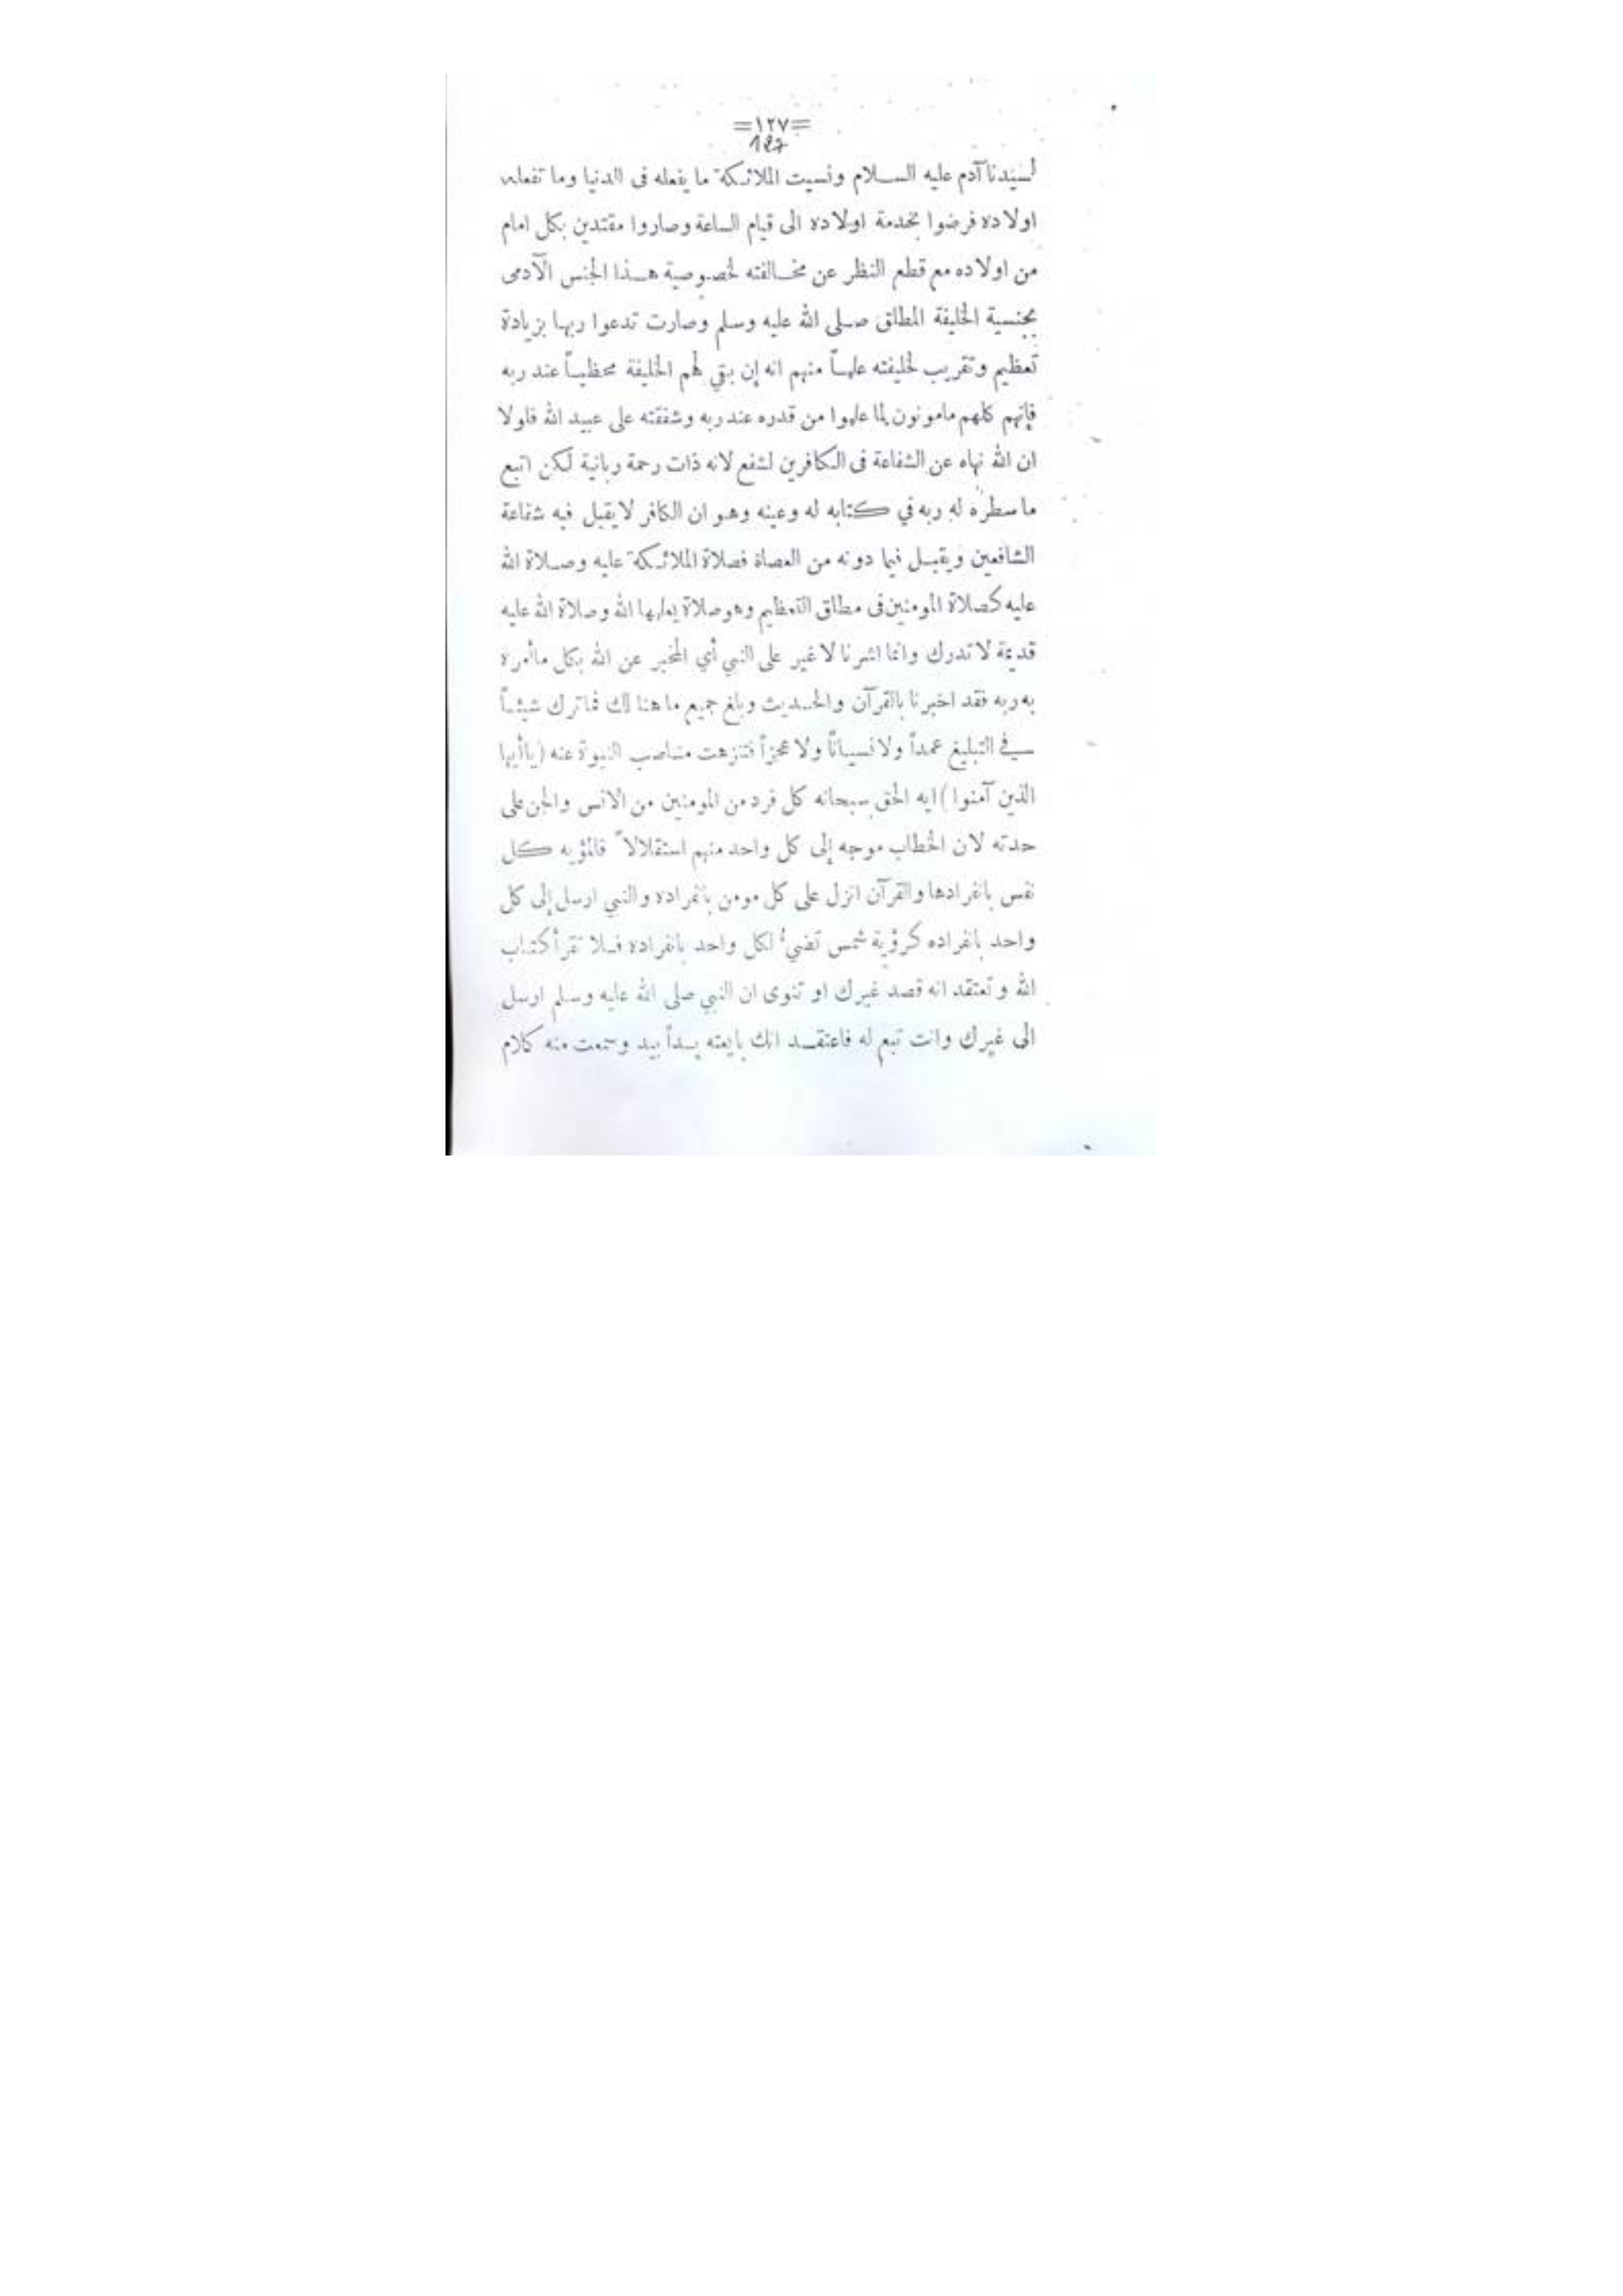 =١٢٧=
127
لسيدنا آدم عليه السلام ونسيت الملائكة ما يفعله فى الدنيا وما تفعله
اولاده فرضوا بخدمة اولاده الى قيام الساعة وصاروا مقتدين بكل امام
من اولاده مع قطع النظر عن مخالفته لخصوصية هذا الجنس الآدمى
بجنسية الخليفة المطلق صلى الله عليه وسلم وصارت تدعوا ربها بزيادة
تعظيم وتقريب لخليفته علماً منهم انه إن بقي لهم الخليفة محظياً عند ربه
فإنهم كلهم مامونون لما علموا من قدره عند ربه وشفقته على عبيد الله فلولا
ان الله نهاه عن الشفاعة فى الكافرين لشفع لانه ذات رحمة ربانية لكن اتبع
ما سطره له ربه في كتابه له وعينه وهو ان الكافر لا يقبل فيه شفاعة
الشافعين ويقبل فيما دونه من العصاة فصلاة الملائكة عليه وصلاة الله
عليه كصلاة المومنين فى مطلق التعظيم وهو صلاة يعلمها الله وصلاة الله عليه
قديمة لا تدرك وانما اشرنا لا غير على النبي أي المخبر عن الله بكل ما أمره
به ربه فقد اخبرنا بالقرآن والحديث وبلغ جميع ما هنا لك فما ترك شيئاً
في التبليغ عمداً ولا نسياناً ولا عجزاً فتنزهت مناصب النبوة عنه (يا أيها
الذين آمنوا) ايه الحق سبحانه كل فرد من المومنين من الانس والجن على
حدته لان الخطاب موجه إلى كل واحد منهم استقلالاً فالمؤيه كل
نفس بانفرادها والقرآن انزل على كل مومن بانفراده والنبي ارسل إلى كل
واحد بانفراده كرؤية شمس تضيءُ لكل واحد بانفراده فلا تقرأ كتاب
الله وتعتقد انه قصد غيرك او تنوى ان النبي صلى الله عليه وسلم ارسل
الى غيرك وانت تبع له فاعتقد انك بايعته يداً بيد وسمعت منه كلام